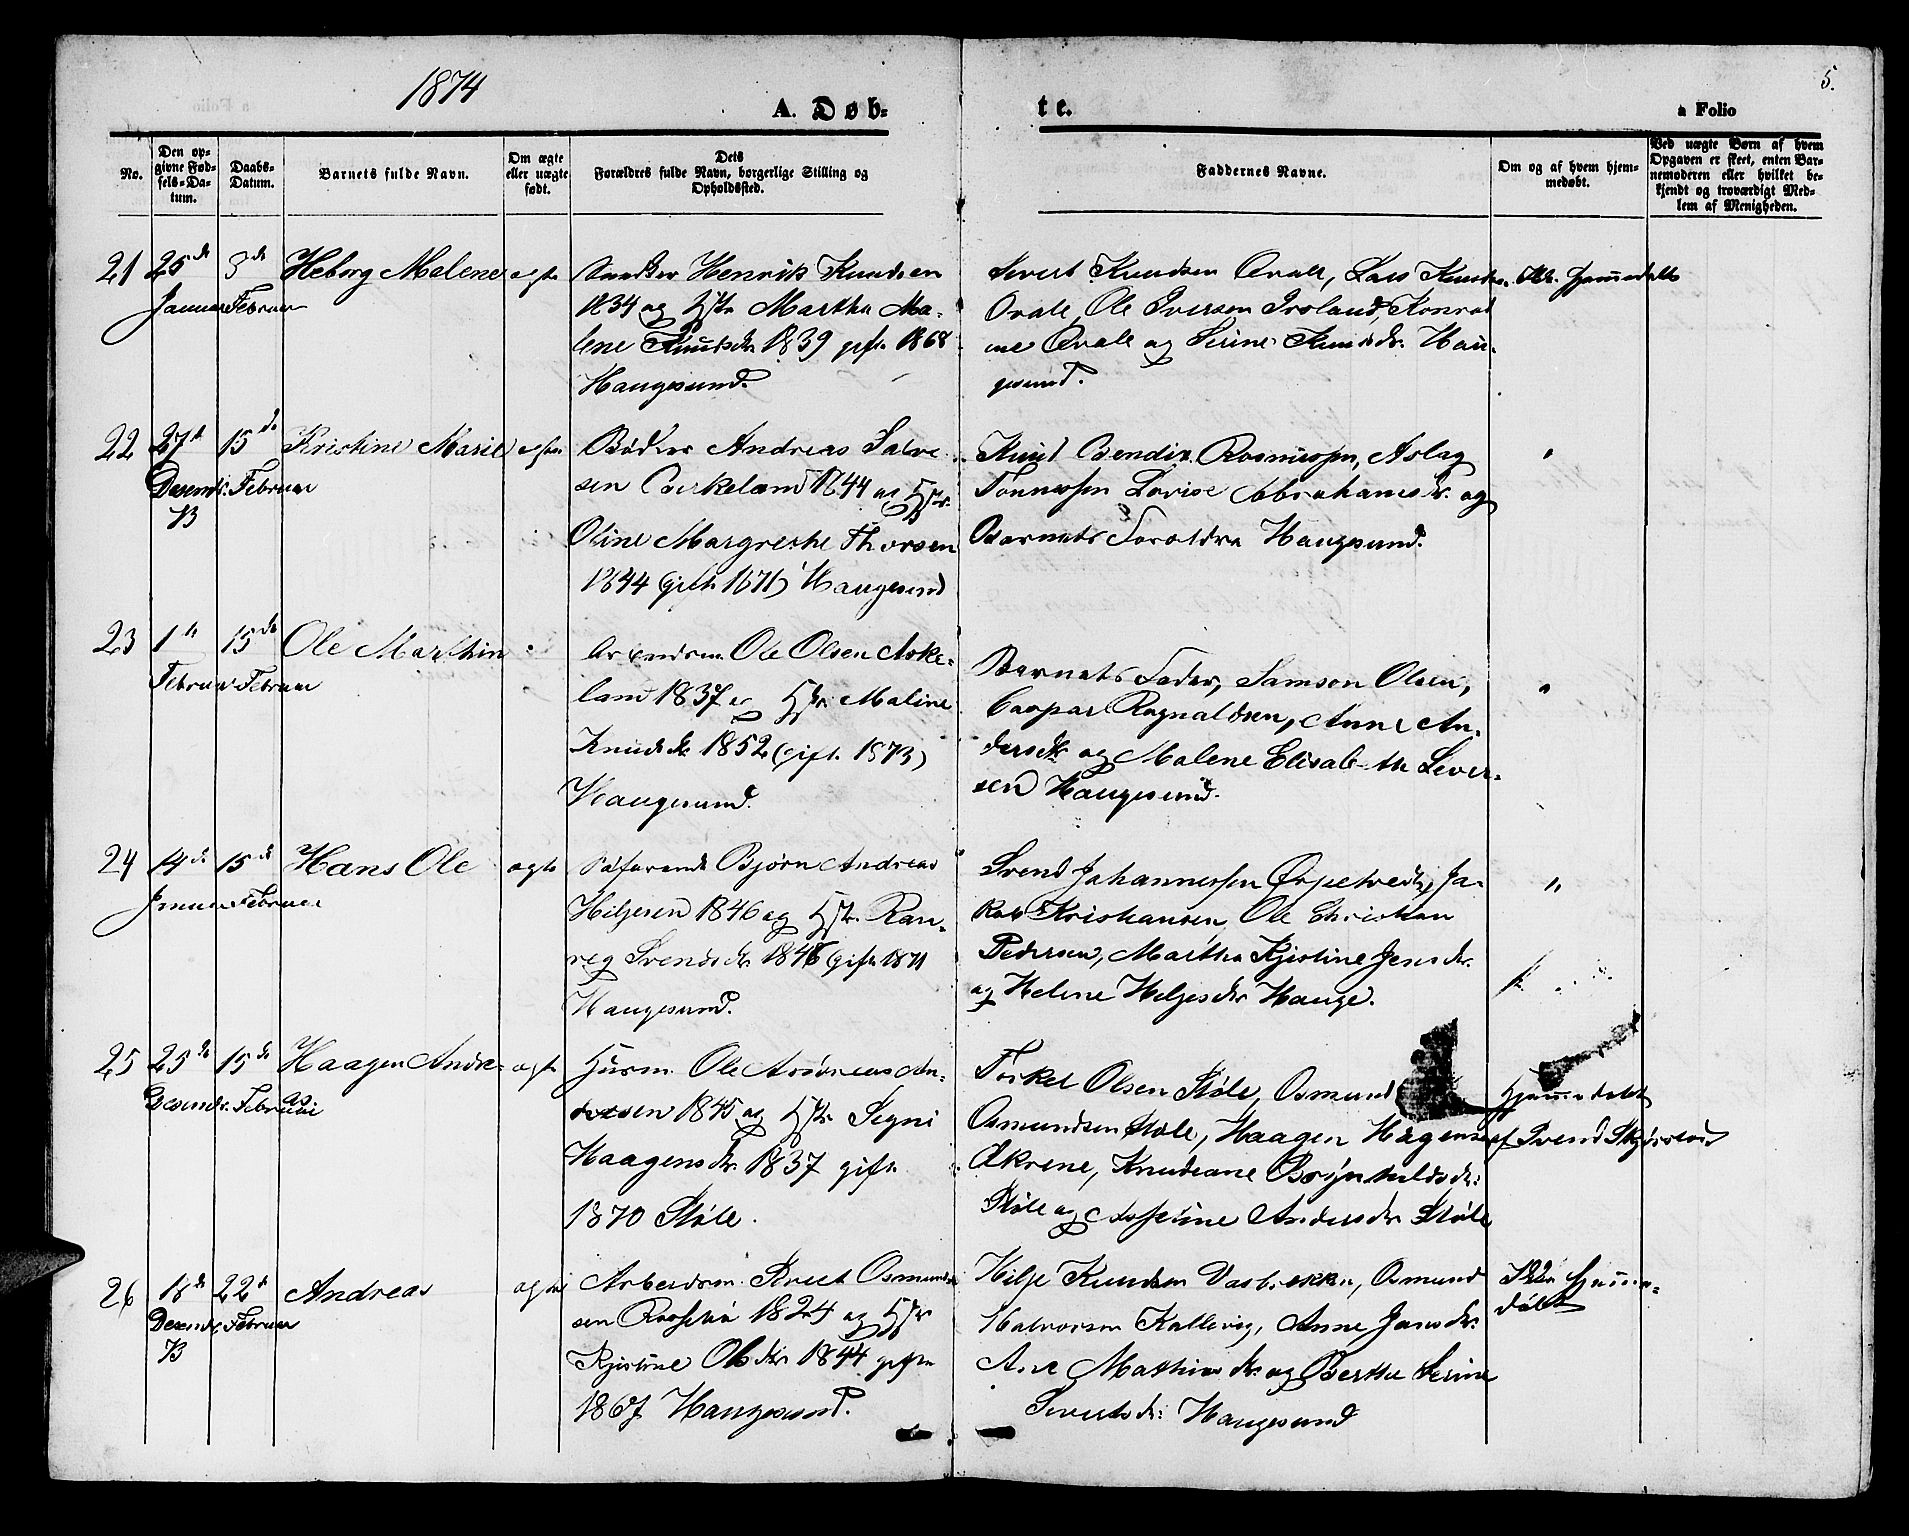 1874
5.
A. Døb-
te.
a Folio
No.
Den op-
givne Fød-
sels-Da-
tum.
Daabs-
Datum.
Barnets fulde Navn.
Om ægte
eller uægte
født.
Dets
Forældres fulde Navn, borgerlige Stilling og
Opholdssted.
Faddernes Navne.
Om og af hvem hjem-
medøbt.
Ved uægte Børn af hvem
Opgaven er skeet, enten Bar-
nemoderen eller hvilket be-
kjendt og troværdigt Med-
lem af Menigheden.
21
25de
Januar
3de
Februar
Heborg Malene
ægte
Henrik Knudsen
1834 og Hstr Martha Ma-
lene Knutsdr. 1839 gift. 1868
Haugesund.
Sivert Knudsen Qvale, Lars Knuds.
Qvale, Ole Iversen Froland, Konrad
ine Qvale og Serine Knudsdr. Hau-
gesund.
Hjemmedøbt
22
27de
Desembr.
73
15de
Februar
Kristine Marie
ægte
Bødker Andreas Salve-
sen Birkeland 1844 og Hstr.
Oline Margrethe Thorsen
1844 (gift. 1871) Haugesund
Knud Bendix Rasmussen, Aslag
Tønnessen Lovise Abrahamsdr. og
Barnets Foreldre Haugesund.
"
23
1te
Februar
15de
Februar
Ole Marthin
"
Arbeidsm. Ole Olsen Aske-
land 1837 og Hstr Maline
Knudsdr 1852 (gift. 1873)
Haugesund.
Barnets Fader, Samson Olsen,
Caspar Ragnaldsen, Anne An-
dersdr og Malene Elisabeth Siver-
sen Haugesund.
"
24
14de
Januar
15de
Februar
Hans Ole
ægte
Søfarende Bjørn Andreas
Hiljesen 1846 og Hstr. Ran-
veg Svendsdr. 1846 (gift. 1871
Haugesund.
Svend Johannessen Ørpetvedt, Ja-
kob Kristiansen, Ole Christian
Pedersen, Martha Kjestine Jensdr.
og Helene Heljesdr Hauge.
"
25
25de
Desembr.
15de
Februar
Haagen Andre-
as.
ægte
Husm. Ole Andreas An-
dersen 1845 og Hstr Segni
Haagensdr. 1837 gift.
1870 Støle.
Torkel Olsen Støle, Osmund
Osmundsen Støle, Haagen Hagens
Økrene, Knudeane Brynhuldsdr.
Støle og Josefine Andersdr Støle
Hjemmedøbt
af Svend
26
18de
Desembr.
73
22de
Februar
Andreas
ægte
Arbeidsm. Sivert Osmund-
sen 1824 og Hstr
Kjistine Olsdr 1844 gift
1867 Haugesund.
Hilje Knudsen Vasbrekke, Osmund
Halvorsen Kallevig, Anne Jansdr.
Ane Mathiasdr. og Berthe Serine
Sivertsdr: Haugesund
Ikke hjemme-
døbt